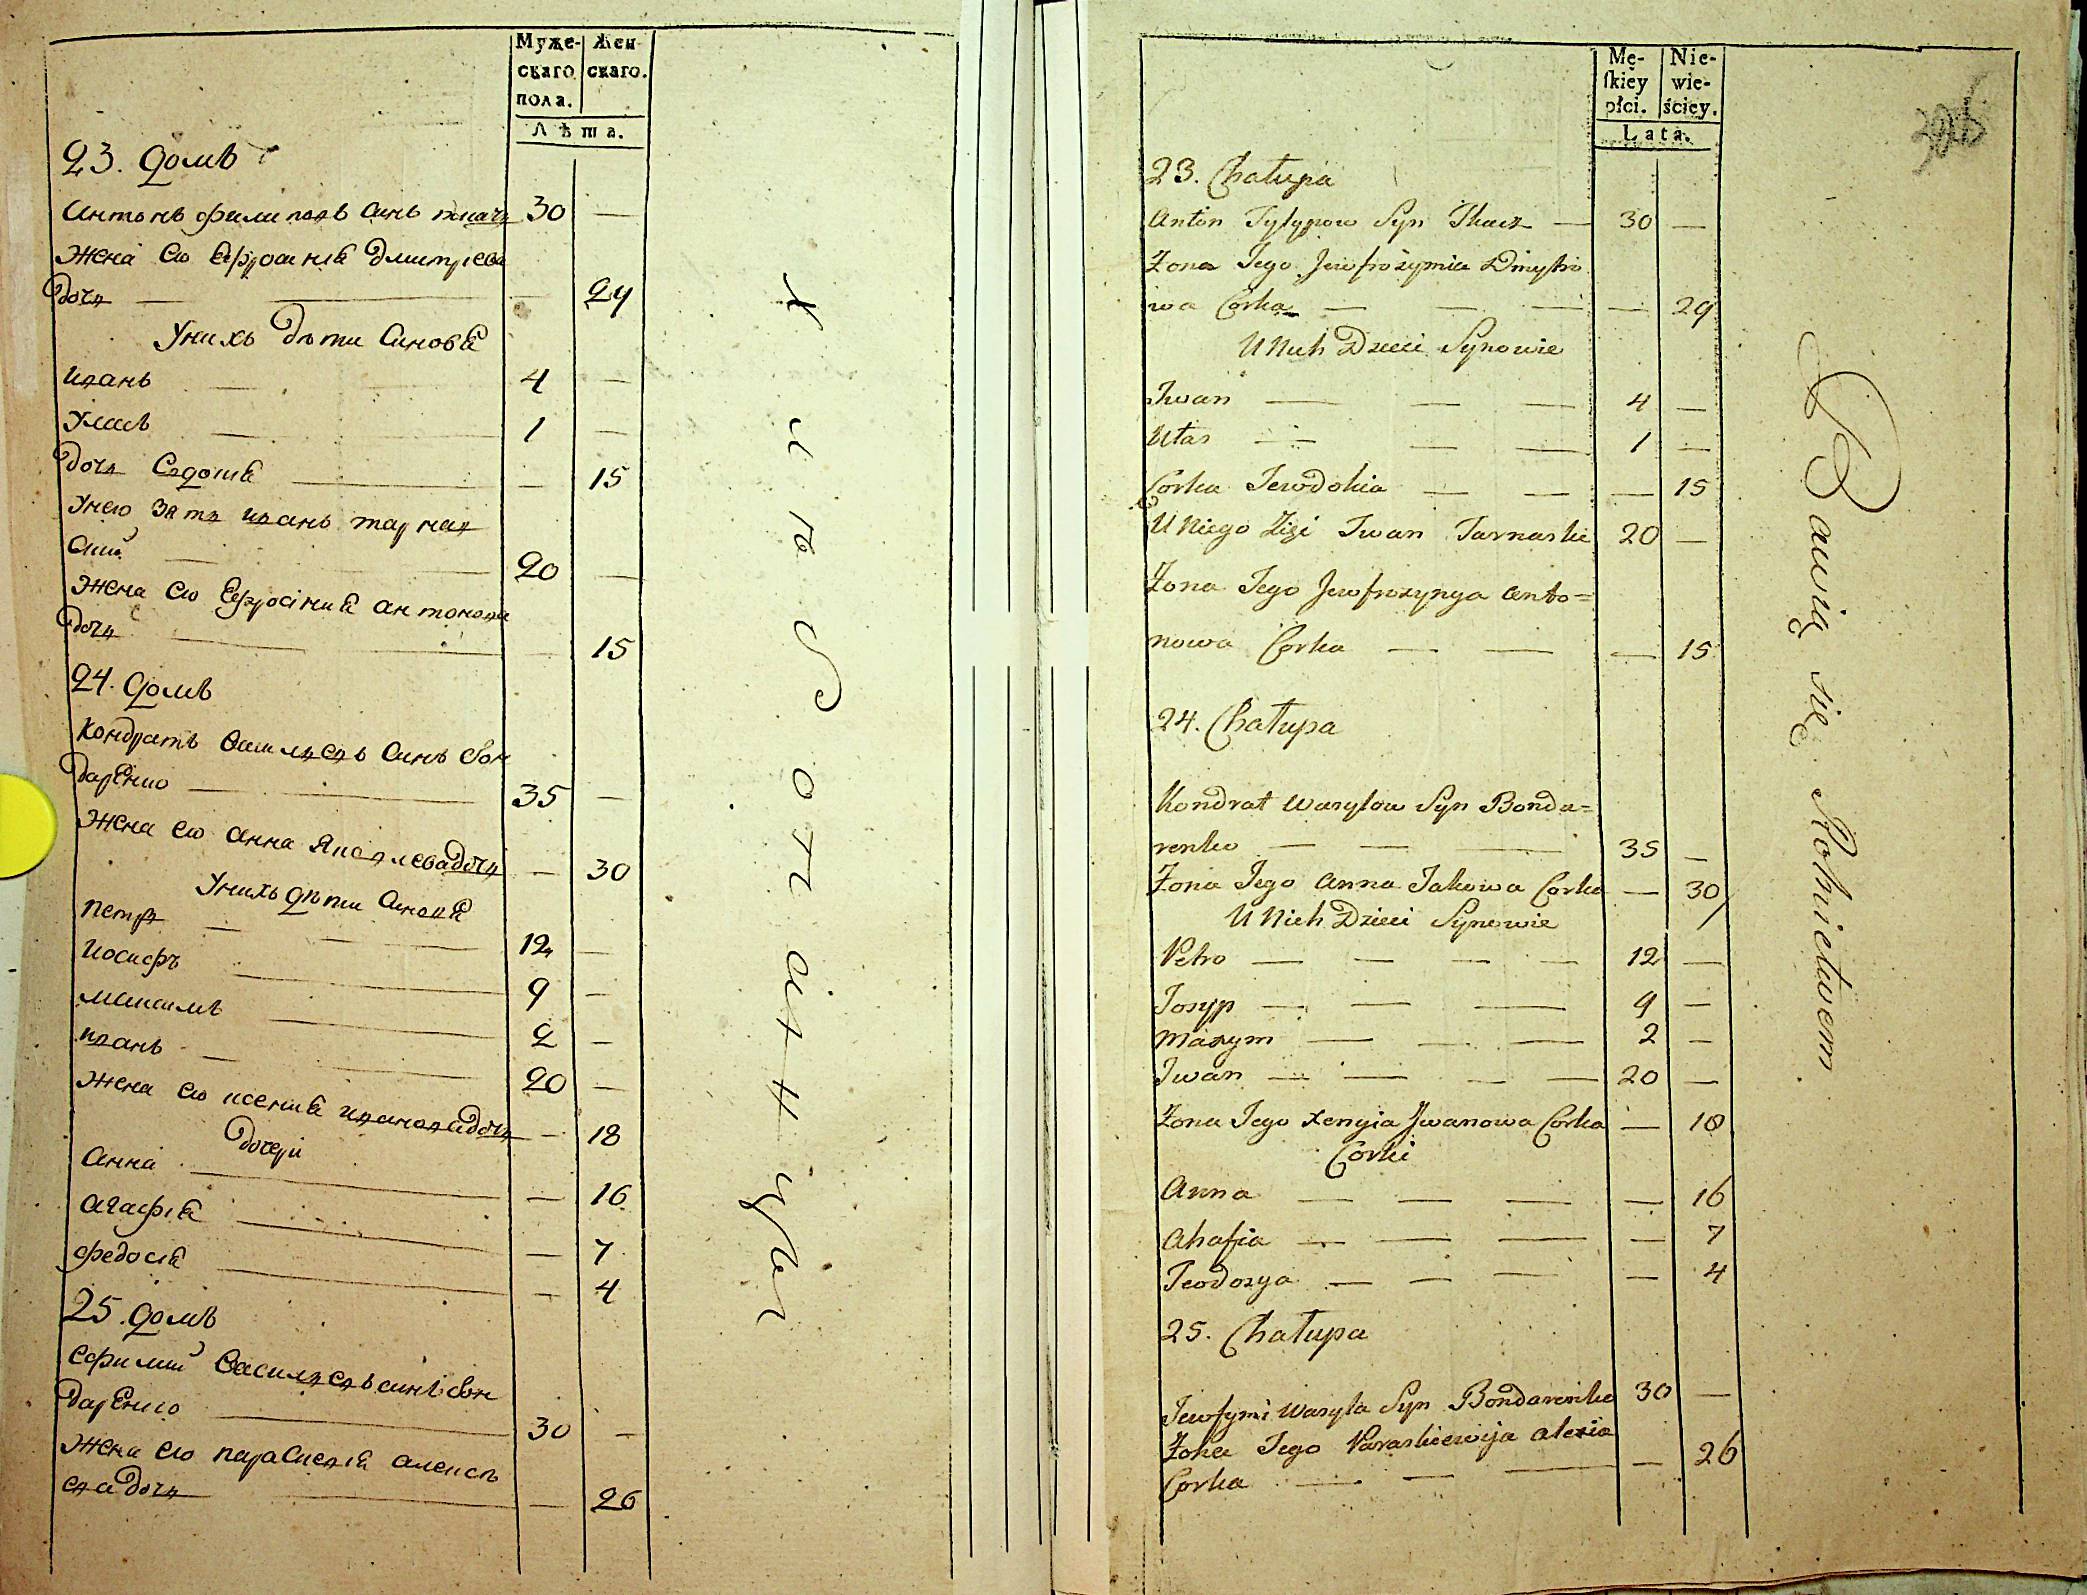 Муже-
скаго
пола.
Жен
скаго.
Лѣта.
23. домъ
Антонъ филиповъ синъ ткачь 30 —
Жена его Ефросинiя дмитрiева
дочь — 29
Унихъ дѣти Синовя
Иванъ — 4 —
Уласъ — 1 —
дочь Євдокия — 15
Унего зять иванъ тарнав
скiй — 20 —
Жена его Ефросiния антонова
дочь — 15
24. домъ
Кондратъ Васильевъ Синъ бон
даренко — 35 —
Жена его анна Яковлева дочь — 30
Унихъ дѣти Синовя
петръ — 12 —
иосифъ — 9 —
максимъ — 2 —
иванъ — 20 —
Жена его ксения иванова дочь — 18
дочери
анна — 16
агафiя — 7
федосiя — 4
25. домъ
Ефимiй Васильевъ синъ бон
даренко — 30 —
Жена его параскевiя алексѣ
ева дочь — 26
Хлѣбопашцы
Mę-
skiey
płci.
Nie-
wie-
ściey.
Lata.
23. Chałupa
Anton Fylypow Syn Tkacz — 30 —
Żona Jego Jewfrożynia Dmytro
wa Corka — — — — 29
U Nich Dzieci Synowie
Iwan — — — 4 —
Ułas — — — 1 —
Corka Jewdokia — — — 15
U Niego Zięć Iwan Tarnaski 20 —
Żona Jego Jewfrozynya Anto=
nowa Corka — — — 15
24. Chałupa
Kondrat Wasylow Syn Bonda=
renko — — — 35 —
Żona Jego Anna Jakowa Corka — 30
U Nich Dzieci Synowie
Petro — — — — 12 —
Josyp — — — 9 —
Maxym — — — 2 —
Iwan — — — — 20 —
Żona Jego Xenyia Jwanowa Corka — 18
Corki
Anna — — — — 16
Ahafia — — — — 7
Teodozya — — — — 4
25. Chałupa
Jewfymi Wasyla Syn Bondarenko 30 —
Żona Jego Paraskiewija Alexia
Corka — — — — 26
Bawią się Rolnictwem